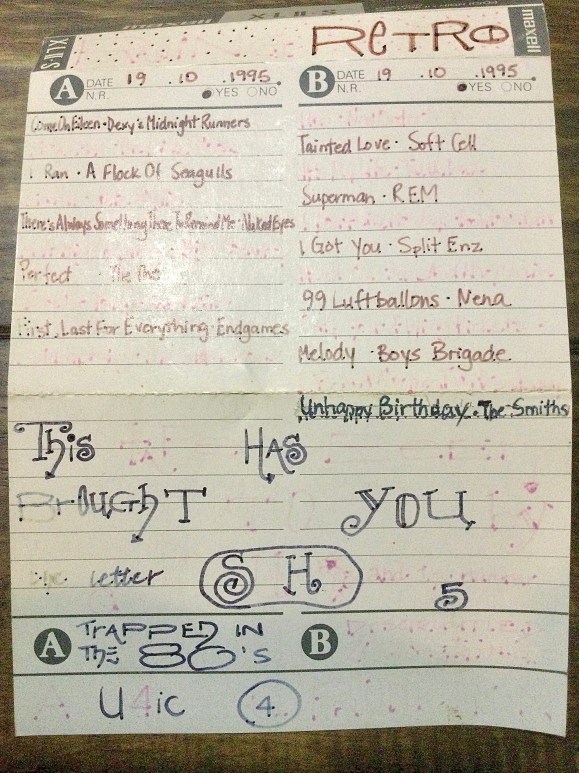 XLII-S
RETRO
maxell
XLII-S
A DATE 19 .10 .1995.
N.R. YES NO
B DATE 19 .10 .1995.
N.R. YES NO
Come On Eileen · Dexy's Midnight Runners
I Ran · A Flock Of Seagulls
There's Always Something There To Remind Me · Naked Eyes
Perfect The The
First, Last For Everything · Endgames
Tainted Love · Soft Cell
Superman · R.E.M
I Got You · Split Enz
99 Luftballons · Nena
Melody · Boys Brigade
Unhappy Birthday · The Smiths
This HAS
BrOUGhT YOU
the letter S H 5
A TRAPPED IN
The 80's
B
U4ic 4